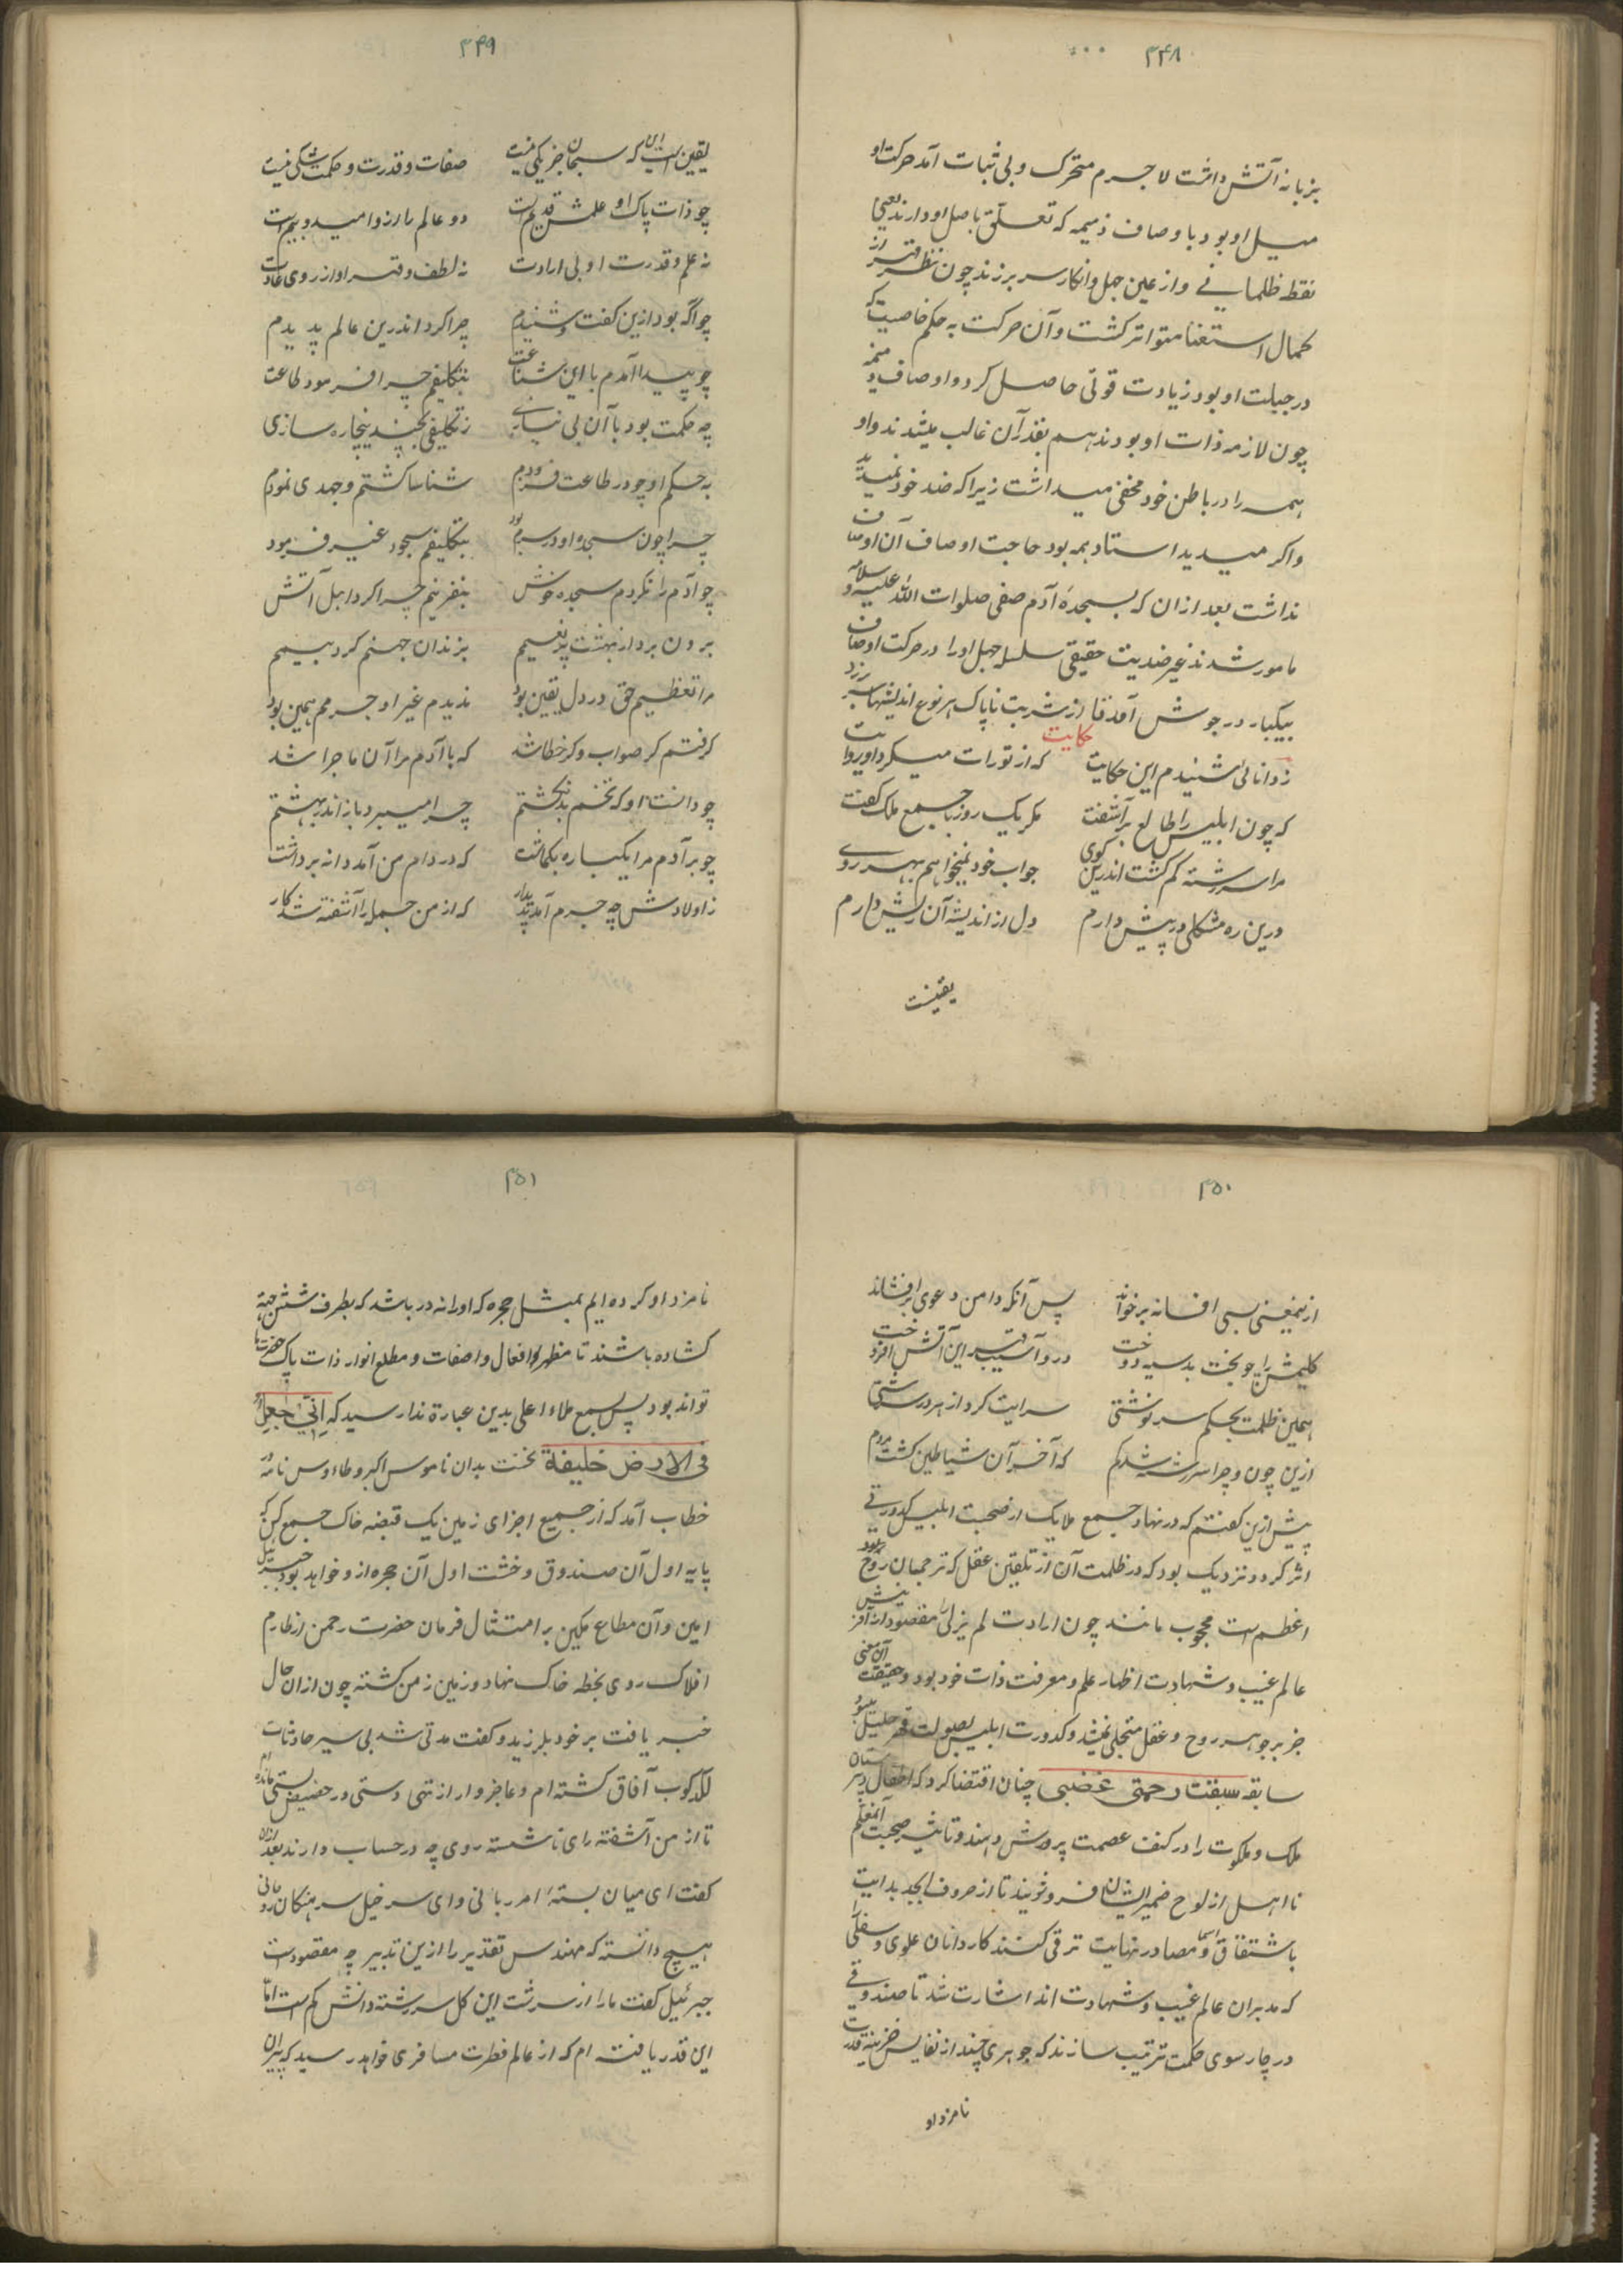 ۳۴۸
بزبانه آتش داشت لاجرم متحرک و بی ثبات آمد حرکت او
میل او بود باوصاف ذمیمه که تعلق باصل او دارند یعنی
نقطه ظلمانی و از عین جهل و انکار سر بر زند چون نظر قهر از
کمال استغنا متواتر کشت و آن حرکت به حکم خاصیت که
در جبلت او بود زیادت قوتی حاصل کرد و اوصاف ذمیمه
چون لازمه ذات او بودند هم بقدر آن غالب میشدند و او
همه را در باطن خود مخفی میداشت زیرا که ضد خود نمیدید
و اکر میدید استاد همه بود حاجت اوصاف آن اوصاف
نداشت بعد از ان که بسجدهٔ آدم صفی صلوات الله علیه و سلامه
مامور شدند غیر ضدیت حقیقی سلسله جهل او را در حرکت اوصاف
بیکبار در جوش آمد تا از شربت ناپاک هر نوع اندیشها سر برزد
حکایت
ز دانائی شنیدم این حکایت که از تورات میکرد او روایت
که چون ابلیس را طالع برآشفت مکر یک روز با جمع ملک کفت
مرا سررشته کم کشت اندرین کوی جواب خود نمیخواهم بهر روی
درین ره مشکلی در پیش دارم دل از اندیشه آن ریش دارم
یقینست
۳۴۹
یقین است این که سبحان جز یکی نیست صفات و قدرت و حکمت شکی نیست
چو ذات پاک او علمش قدیم است دو عالم را ازو امید و بیم است
نه علم و قدرت او بی ارادت نه لطف و قهر او از روی عادت
چو آکه بود ازین کفت و شنیدم چرا کرد اندرین عالم پدیدم
چو پیدا آمدم با این شناعت بتکلیفم چرا فرمود طاعت
چه حکمت بود با آن بی نیازی ز تکلیفی بچندین چاره سازی
به حکم او چو در طاعت فزودم شناسا کشتم و جهدی نمودم
چرا چون سجدهٔ او در سرم بود بتکلیفم سجود غیر فرمود
چو آدم را نکردم سجده خوش بنفرینم چرا کرد اهل آتش
برون برد از بهشت پر نعیمم بزندان جهنم کرد بیمم
مرا تعظیم حق در دل یقین بود ندیدم غیر او جرمم همین بود
کرفتم کر صواب و کر خطا شد که با آدم مرا آن ماجرا شد
چو دانست او که تخم بد بکشتم چرا میبرد باز اندر بهشتم
چو بر آدم مرا یکباره بکماشت که در دام من آمد دانه برداشت
ز اولادش چه جرم آمد پدیدار که از من جمله را آشفته شد کار
۳۵۰
ازینمعنی بسی افسانه برخواند پس آنکه دامن دعوی برافشاند
کلیمش را چو بخت بد سیه دوخت درو آسیب قهر این آتش افروخت
همین ظلمت بحکم سرنوشتی سرایت کرد از هر در سرشتی
ازین چون و چرا سررشته شد کم که آخر آن شیاطین کشت مردم
پیش ازین کفتم که در نهاد جمع ملایک از صحبت ابلیس کدورتی
اثر کرد و نزدیک بود که در ظلمت آن از تلقین عقل که ترجمان روح
اعظم است محجوب مانند چون ارادت لم یزلی را مقصود از آفرینش
عالم غیب و شهادت اظهار علم و معرفت ذات خود بود و حقیقت آن معنی
جز بر جوهر روح و عقل متجلی نمیشد و کدورت ابلیس بصولت قهر
سابقه سبقت رحمتی غضبی چنان اقتضا کرد که اطفال دبیرستان
ملک و ملکوت را در کنف عصمت پرورش دهند و تاثیر صحبت آن معلم
نا اهل از لوح ضمیر ایشان فرو شویند تا از حروف ابجد بدایت
باشتقاق اسما و مصادر نهایت ترقی کنند کاردانان علوی و سفلی را
که مدبران عالم غیب و شهادت اند اشارت شد تا صندوقی
در چار سوی حکمت ترتیب سازند که جوهری چند از نفایس خزینه قدرت
نامزد او
۳۵۱
نامزد او کرده ایم بمثل حجره که او را نه در باشد که بطرف شش جهة
کشاده باشند تا مظهر افعال و صفات و مطلع انوار ذات پاک حضرت ما
تواند بود پس بسمع ملاء اعلی بدین عبارة ندا رسید که اِنّی جٰعِلٌ
فی الارض خلیفة نخست بدان ناموس اکبر و طاءوس نامور
خطاب آمد که از جمیع اجزای زمین یک قبضه خاک جمع کن که
پایه اول آن صندوق و خشت اول آن حجره ازو خواهد بود جبریل
امین و آن مطاع مکین بر امتثال فرمان حضرت رحمن از طارم
افلاک روی بخطه خاک نهاد و زمین ز من کشته چون از ان حال
خبر یافت بر خود بلرزید و کفت مدتی شد بی سیر حادثات
لکدکوب آفاق کشته ام و عاجز وار از تهی دستی در حضیض پستی مانده ام
تا از من آشفته رای ناشسته روی چه در حساب دارند بعد از ان
کفت ای میان بستهٔ امر ربانی و ای سرخیل سرهنکان روحانی
هیچ دانسته که مهندس تقدیر را ازین تدبیر چه مقصود است
جبرئیل کفت ما را از سرشت این کل سررشته دانش کم است اما
این قدر یافته ام که از عالم فطرت مسافری خواهد رسید که پیران